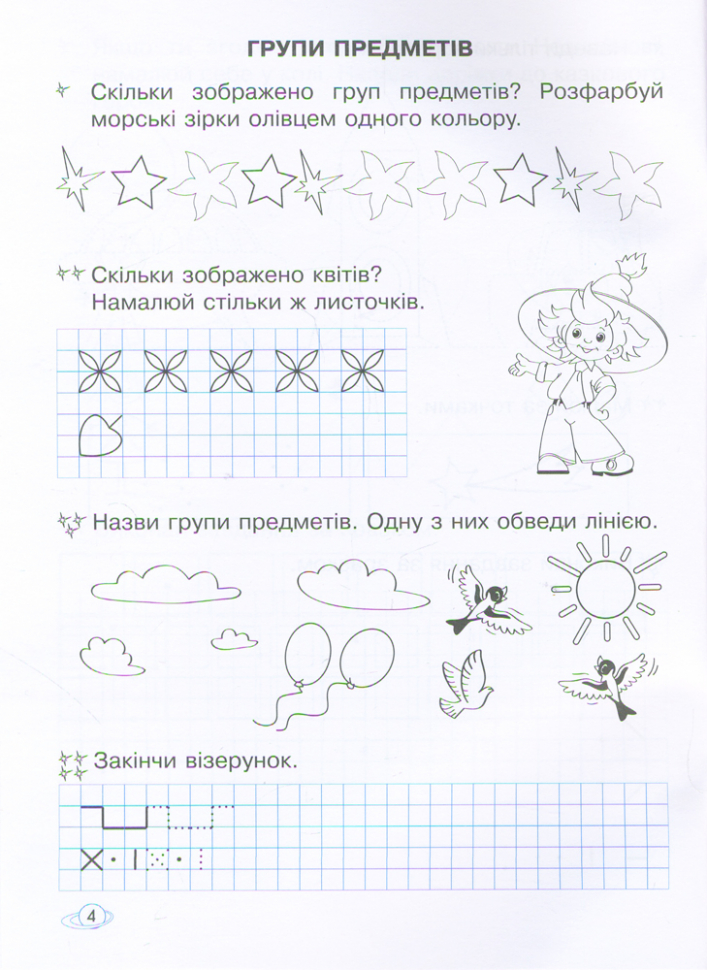 ГРУПИ ПРЕДМЕТІВ
Скільки зображено груп предметів? Розфарбуй
морські зірки олівцем одного кольору.
Скільки зображено квітів?
Намалюй стільки ж листочків.
Назви групи предметів. Одну з них обведи лінією.
Закінчи візерунок.
4